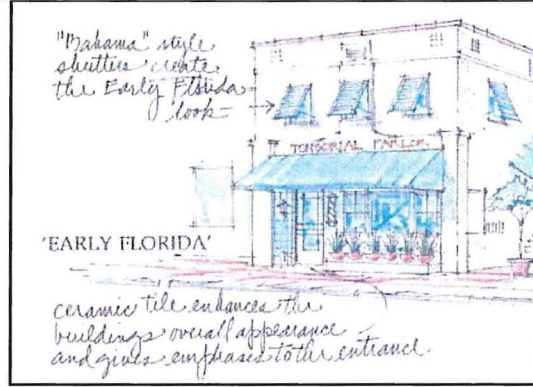 "Bahama" style
shutters create
the Early Florida
look
TONSORIAL PARLOR
'EARLY FLORIDA'
ceramic tile enhances the
buildings overall appearance
and gives emphasis to the entrance.